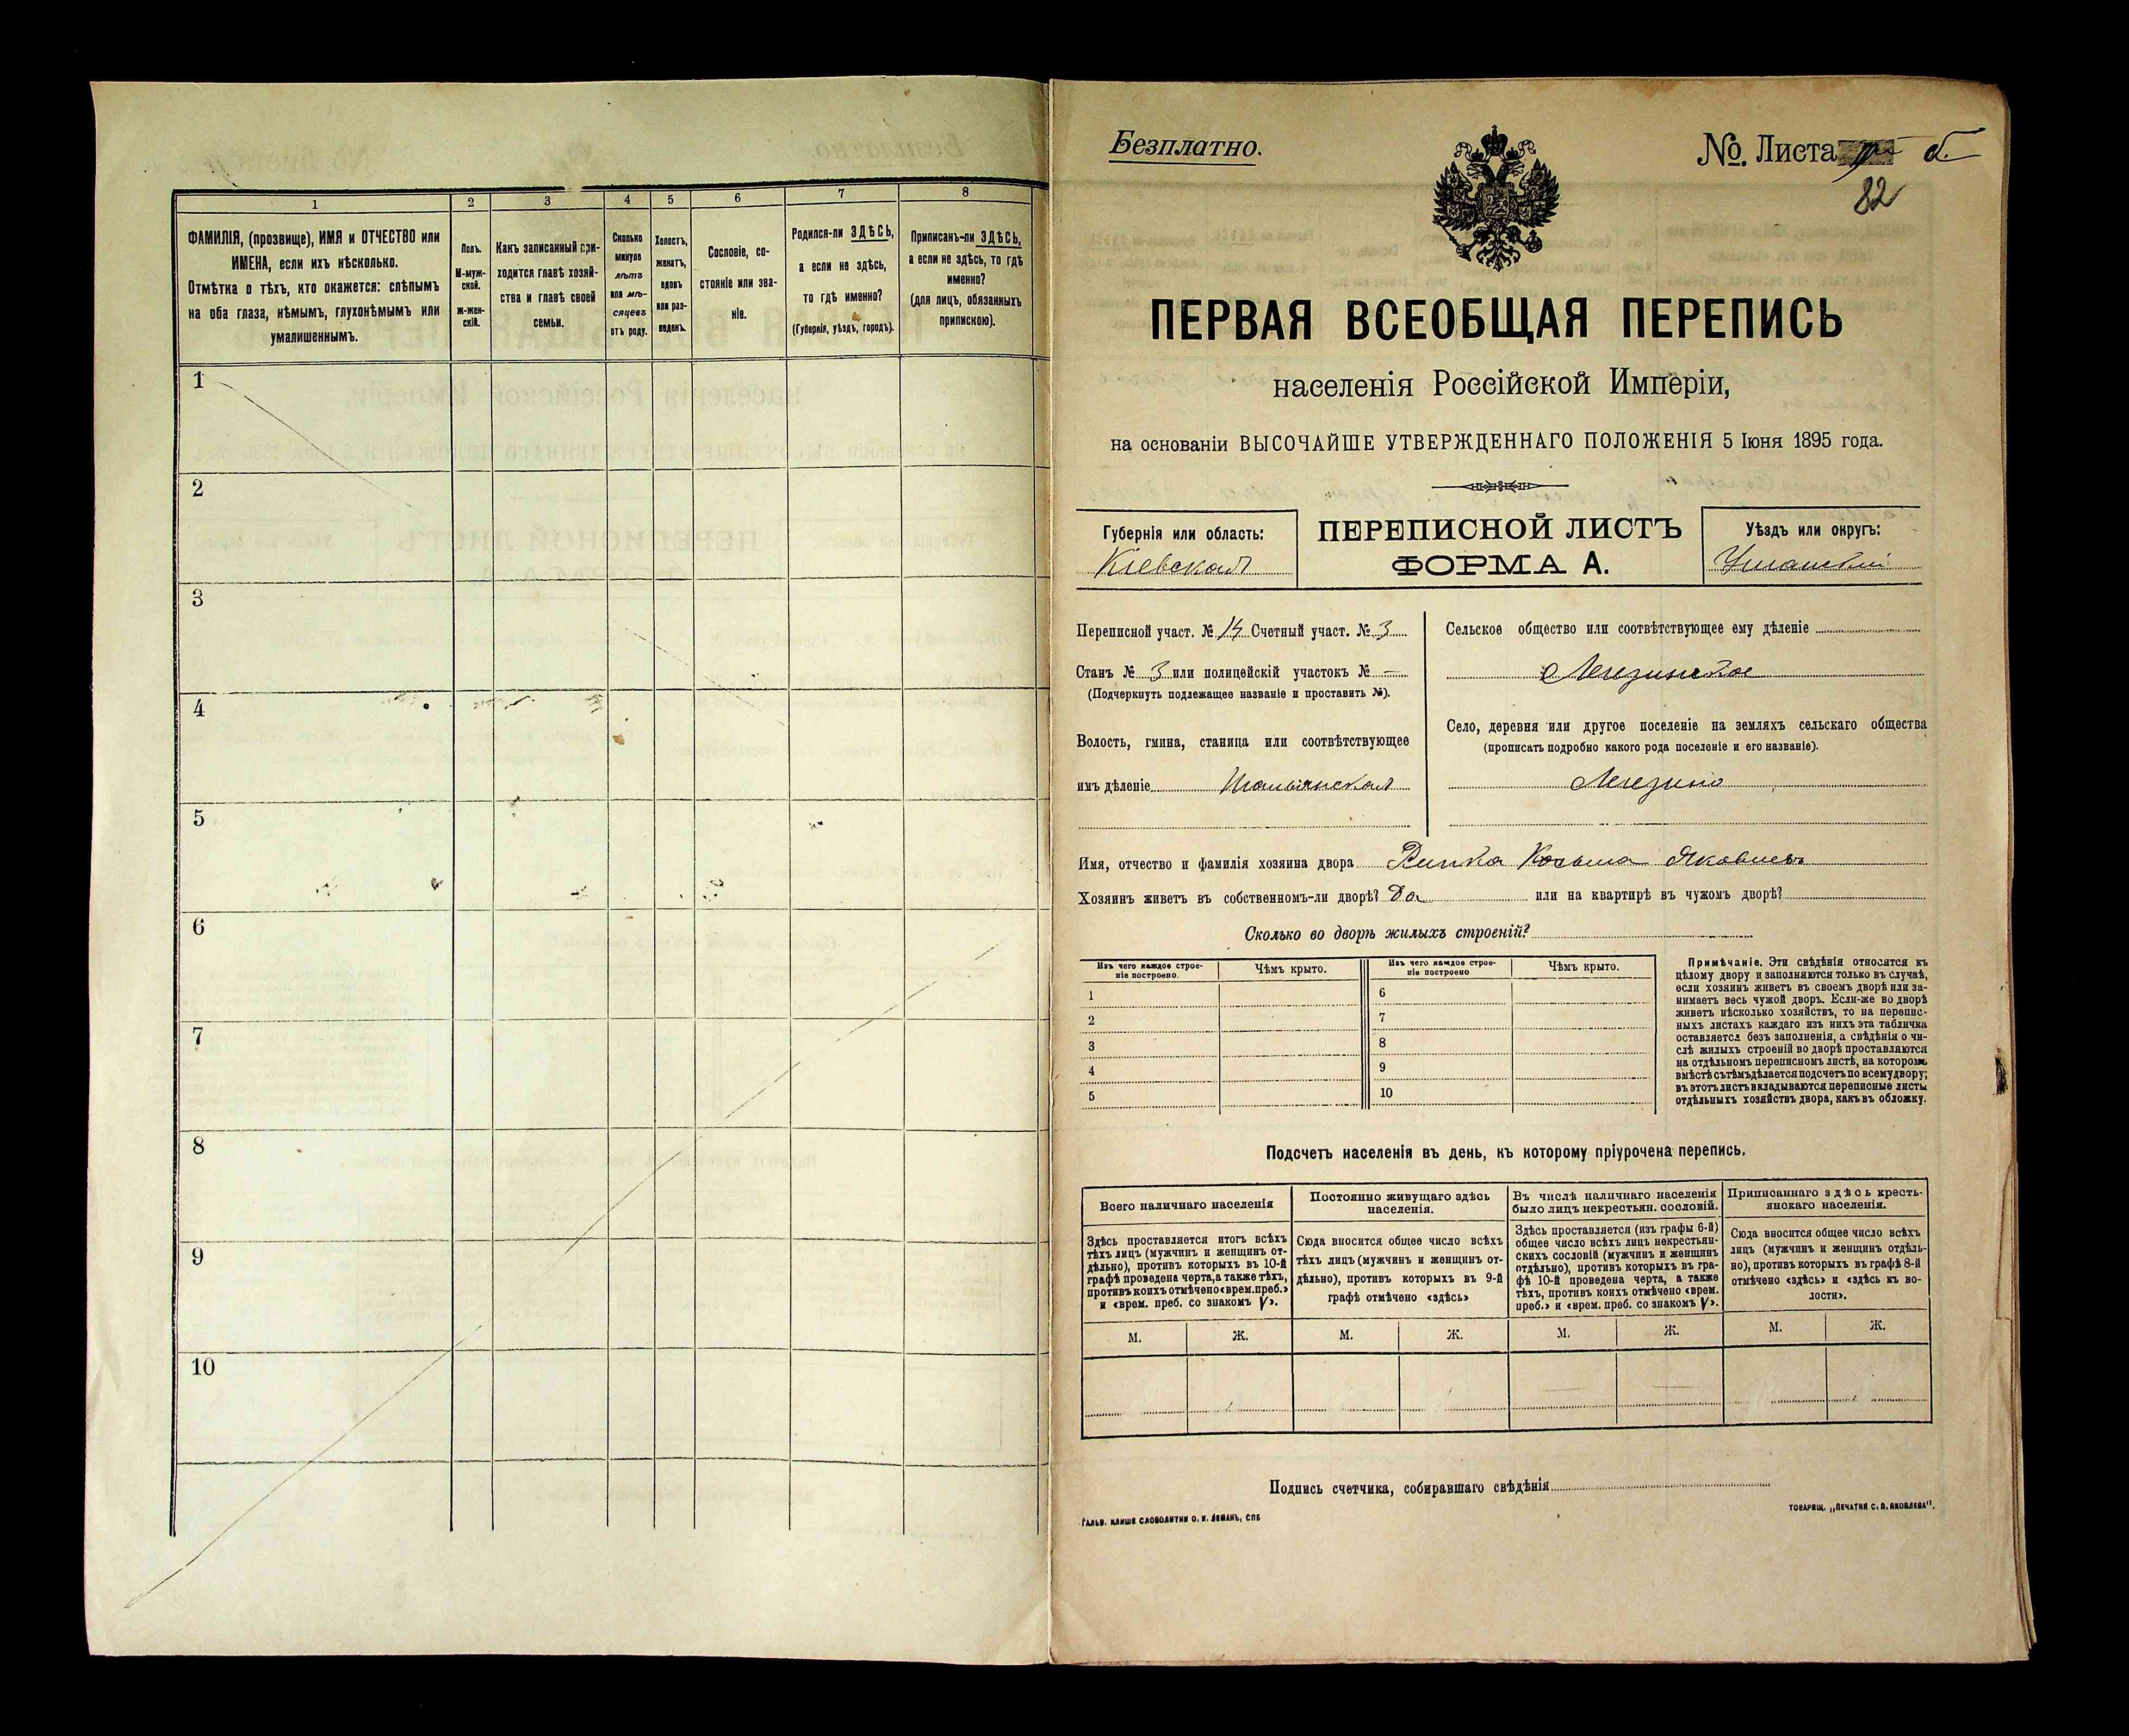 1
2
3
4
5
6
7
8
ФАМИЛІЯ, (прозвище), ИМЯ и ОТЧЕСТВО или
ИМЕНА, если ихъ нѣсколько.
Отмѣтка о тѣхъ, кто окажется: слѣпымъ
на оба глаза, нѣмымъ, глухонѣмымъ или
умалишеннымъ.
Полъ.
М-муж-
ской.
ж-жен-
скій.
Какъ записанный при-
ходится главѣ хозяй-
ства и главѣ своей
семьи.
Сколько
минуло
лѣтъ
или мѣ-
сяцевъ
отъ роду.
Холостъ,
женатъ,
вдовъ
или раз-
веденъ.
Сословіе, со-
стояніе или зва-
ніе.
Родился-ли ЗДѢСЬ,
а если не здѣсь,
то гдѣ именно?
(Губернія, уѣздъ, городъ).
Приписанъ-ли ЗДѢСЬ,
а если не здѣсь, то гдѣ
именно?
(для лицъ, обязанныхъ
припискою).
1
2
3
4
5
6
7
8
9
10
Безплатно.
№. Листа
82
ПЕРВАЯ ВСЕОБЩАЯ ПЕРЕПИСЬ
населенія Россійской Имперіи,
на основаніи ВЫСОЧАЙШЕ УТВЕРЖДЕННАГО ПОЛОЖЕНІЯ 5 Іюня 1895 года.
Губернія или область:
Кіевская
ПЕРЕПИСНОЙ ЛИСТЪ
ФОРМА А.
Уѣздъ или округъ:
Уманскій
Переписной участ. № 14 Счетный участ. № 3
Станъ № 3 или полицейскій участокъ № —
(Подчеркнуть подлежащее названіе и проставить №).
Волость, гмина, станица или соотвѣтствующее
имъ дѣленіе
Сельское общество или соотвѣтствующее ему дѣленіе
Легезинское
Село, деревня или другое поселеніе на земляхъ сельскаго общества
(прописать подробно какого рода поселеніе и его названіе).
Легезино
Имя, отчество и фамилія хозяина двора Козьма Яковлевъ
Хозяинъ живетъ въ собственномъ-ли дворѣ? Да или на квартирѣ въ чужомъ дворѣ?
Сколько во дворѣ жилыхъ строеній?
Изъ чего каждое строе-
ніе построено.
Чѣмъ крыто.
Изъ чего каждое строе-
ніе построено
Чѣмъ крыто.
1
2
3
4
5
6
7
8
9
10
Примѣчаніе. Эти свѣдѣнія относятся къ
цѣлому двору и заполняются только въ случаѣ,
если хозяинъ живетъ въ своемъ дворѣ или за-
нимаетъ весь чужой дворъ. Если-же во дворѣ
живетъ нѣсколько хозяйствъ, то на перепис-
ныхъ листахъ каждаго изъ нихъ эта табличка
оставляется безъ заполненія, а свѣдѣнія о чи-
слѣ жилыхъ строеній во дворѣ проставляются
на отдѣльномъ переписномъ листѣ, на которомъ
вмѣстѣ съ тѣмъ дѣлается подсчетъ по всему двору;
въ этотъ листъ вкладываются переписные листы
отдѣльныхъ хозяйствъ двора, какъ въ обложку.
Подсчетъ населенія въ день, къ которому пріурочена перепись.
Всего наличнаго населенія
Здѣсь проставляется итогъ всѣхъ
тѣхъ лицъ (мужчинъ и женщинъ от-
дѣльно), противъ которыхъ въ 10-й
графѣ проведена черта, а также тѣхъ,
противъ коихъ отмѣчено «врем. преб.»
и «врем. преб. со знакомъ V».
Постоянно живущаго здѣсь
населенія.
Сюда вносится общее число всѣхъ
тѣхъ лицъ (мужчинъ и женщинъ от-
дѣльно), противъ которыхъ въ 9-й
графѣ отмѣчено «здѣсь»
Въ числѣ наличнаго населенія
было лицъ некрестьян. сословій.
Здѣсь проставляется (изъ графы 6-й)
общее число всѣхъ лицъ некрестьян-
скихъ сословій (мужчинъ и женщинъ
отдѣльно), противъ которыхъ въ гра-
фѣ 10-й проведена черта, а также
тѣхъ, противъ коихъ отмѣчено «врем.
преб.» и «врем. преб. со знакомъ V».
Приписаннаго здѣсь кресть-
янскаго населенія.
Сюда вносится общее число всѣхъ
лицъ (мужчинъ и женщинъ отдѣль-
но), противъ которыхъ въ графѣ 8-й
отмѣчено «здѣсь» и «здѣсь къ во-
лости».
М. Ж. М. Ж. М. Ж. М. Ж.
Подпись счетчика, собиравшаго свѣдѣнія
ГАЛЬВ. КЛИШЕ СЛОВОЛИТНИ О. И. ЛЕМАНЪ, СПБ
ТОВАРИЩ. „ПЕЧАТНЯ С. П. ЯКОВЛЕВА".